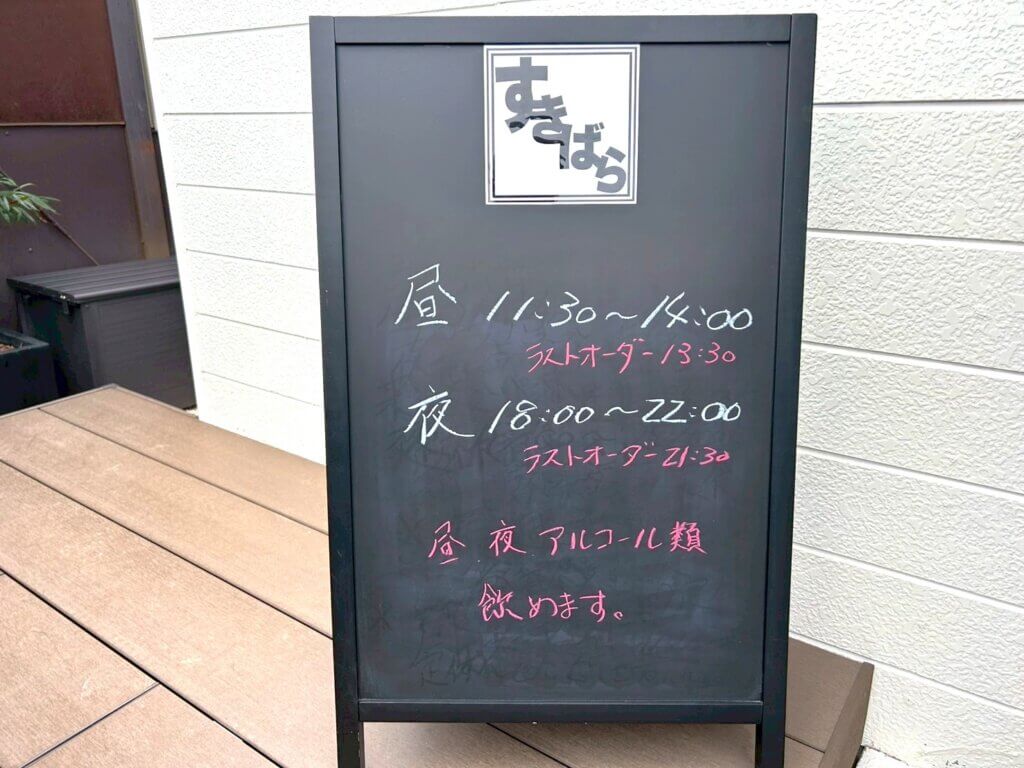 すきばら
昼 11:30～14:00
ラストオーダー 13:30
夜 18:00～22:00
ラストオーダー 21:30
昼 夜 アルコール類
飲めます。